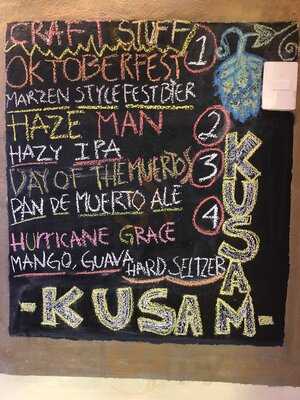 CRAFT STUFF
OKTOBERFEST 1
MARZEN STYLE FESTBIER
HAZE MAN 2
HAZY IPA
DAY OF THE MUERTOS 3
PAN DE MUERTO ALE
HURRICANE GRACE 4
MANGO, GUAVA HARD SELTZER
KUSAM
-KUSAM-